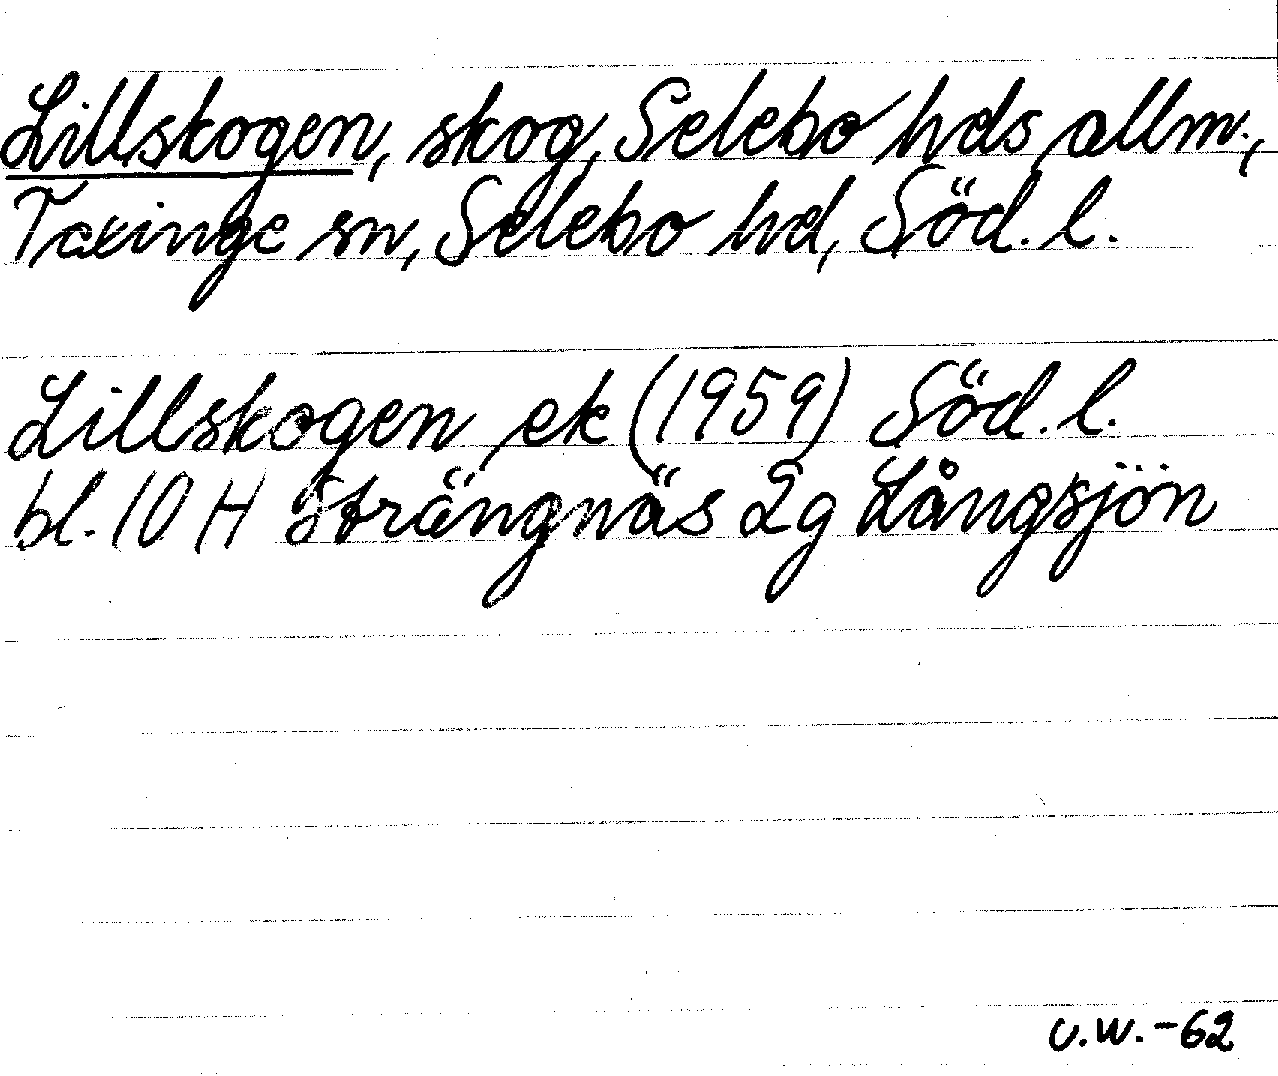 Lillskogen, skog, Selebo hds allm.,
Taxinge sn, Selebo hd, Söd. l.
Lillskogen ek (1959) Söd. l.
bl. 10 H Strängnäs 2g Långsjön
U.W. -62